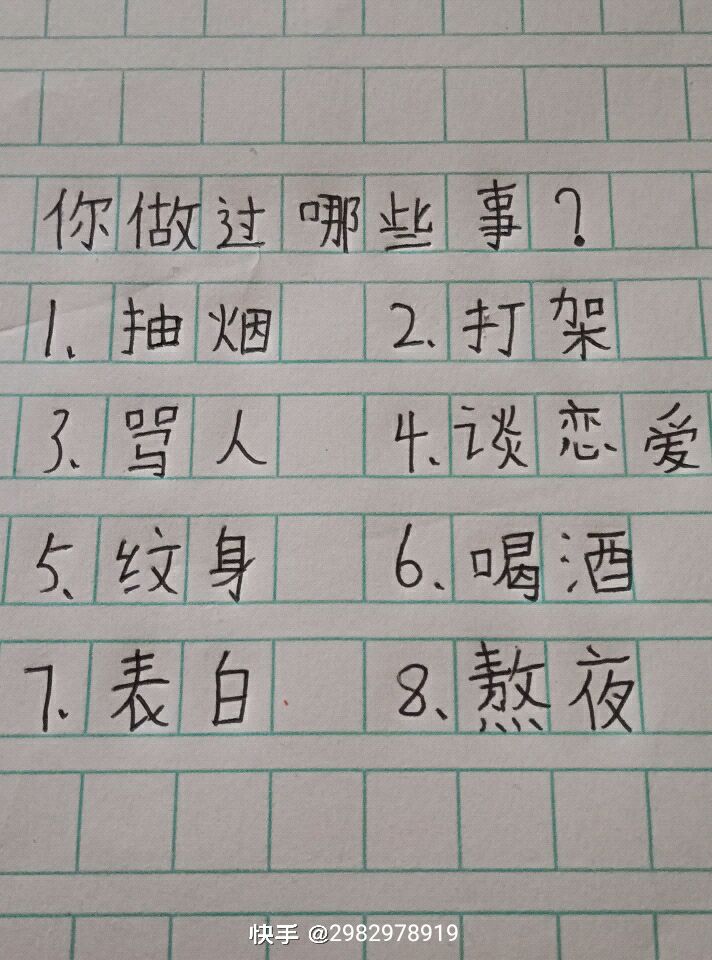 你做过哪些事？
1、抽烟 2、打架
3、骂人 4、谈恋爱
5、纹身 6、喝酒
7、表白 8、熬夜
快手 @2982978919